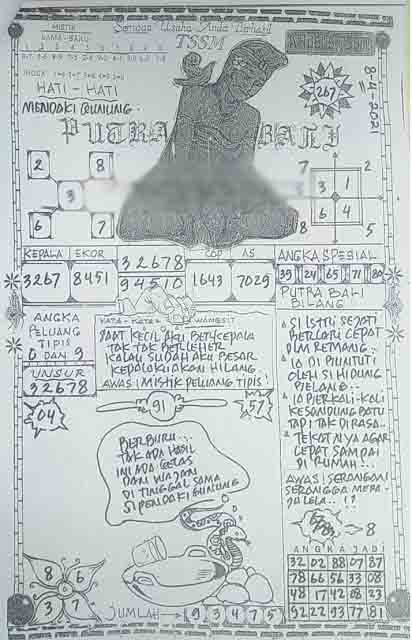 MISTIK
LAMA - BARU
Semoga Usaha Anda Berhasil
TSSM
8-4-2021
267
HATI - HATI
MENDAKI GUNUNG..
PUTRA BALI
2 8
3
6 7
7 2
3 1
6 4
8 5
KEPALA EKOR
3267 8451
32678
94510
COP AS
1643 7029
ANGKA SPESIAL
39 24 65 71 80
PUTRA BALI
BILANG
SI ISTRI SEJATI
BERLARI CEPAT
DLM REMANG..
IA DI PUNTUTI
OLEH SI HIDUNG
BELANG..
IA BERKALI-KALI
KESANDUNG BATU
TAPI TAK DIRASA..
TEKATNYA AGAR
CEPAT SAMPAI
DI RUMAH..
AWAS! SERANGAN
SERANGGA MERA-
JALELA.. !?
8
ANGKA
PELUANG
TIPIS
0 DAN 9
UNSUR
32678
04
KATA-KATA WANGSIT
SAAT KECIL AKU BERKEPALA
TAK TAK BERLEHER
KALAU SUDAH AKU BESAR
KEPALAKU AKAN HILANG..
AWAS! MISTIK PELUANG TIPIS!
91
57
BERBURU...
TAK ADA HASIL
INI ADA GELAS
DAN WAJAN
DI TINGGAL SAMA
SI PENDAKI GUNUNG
8 6
3 7
JUMLAH 9 3 4 7 5
ANGKA JADI
32 02 88 07 87
78 66 56 33 08
48 17 42 08 23
92 22 93 77 81